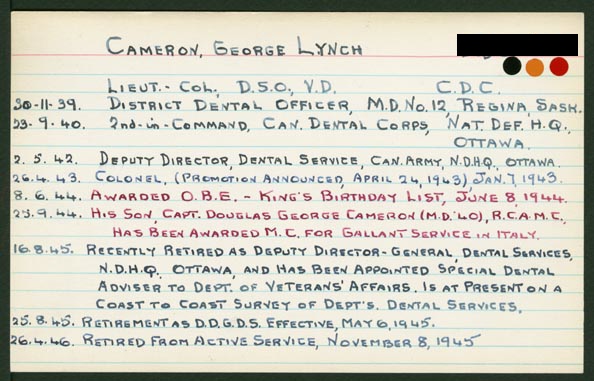 CAMERON, GEORGE LYNCH
LIEUT.- COL., D.S.O., V.D. C.D.C.
30-11-39. DISTRICT DENTAL OFFICER, M.D. No. 12, REGINA, SASK.
23-9-40. 2nd-in-COMMAND, CAN. DENTAL CORPS, NAT. DEF. H.Q.,
OTTAWA.
2.5.42. DEPUTY DIRECTOR, DENTAL SERVICE, CAN. ARMY, N.D.H.Q., OTTAWA.
26.4.43. COLONEL, (PROMOTION ANNOUNCED, APRIL 24, 1943) JAN. 7, 1943.
8.6.44. AWARDED O.B.E. - KING'S BIRTHDAY LIST, JUNE 8, 1944.
23.9.44. HIS SON, CAPT. DOUGLAS GEORGE CAMERON (M.D. '40), R.C.A.M.C.,
HAS BEEN AWARDED M.C. FOR GALLANT SERVICE IN ITALY.
16.8.45. RECENTLY RETIRED AS DEPUTY DIRECTOR-GENERAL, DENTAL SERVICES,
N.D.H.Q., OTTAWA, AND HAS BEEN APPOINTED SPECIAL DENTAL
ADVISER TO DEPT. OF VETERANS' AFFAIRS. IS AT PRESENT ON A
COAST TO COAST SURVEY OF DEPT'S. DENTAL SERVICES.
25.8.45. RETIREMENT AS D.D.G.D.S. EFFECTIVE, MAY 6, 1945.
26.4.46. RETIRED FROM ACTIVE SERVICE, NOVEMBER 8, 1945